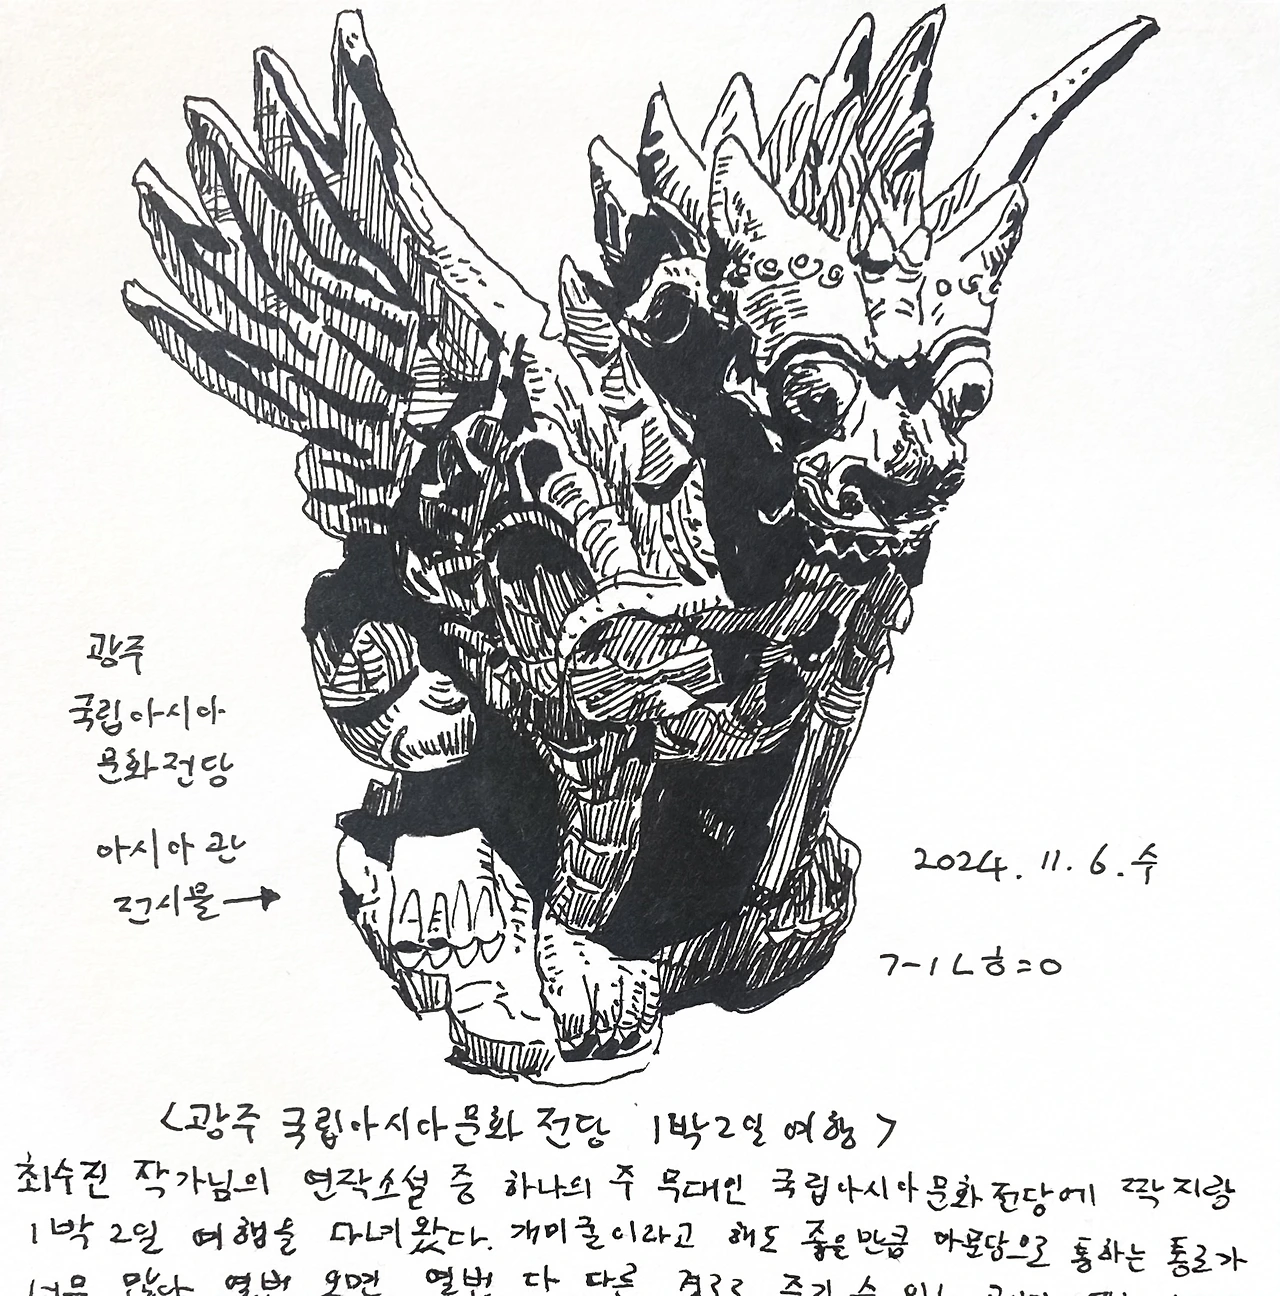 광주
국립아시아
문화전당
아시아관
전시물→
2024. 11. 6. 수
<광주 국립아시아문화전당 1박2일 여행>
최수진 작가님의 연작소설 중 하나의 주 무대인 국립아시아문화전당에 짝지랑
1박 2일 여행을 다녀왔다. 개미굴이라고 해도 좋을만큼 아문당으로 통하는 통로가
너무 많다. 열번 오면 열번 다 다른 경로로